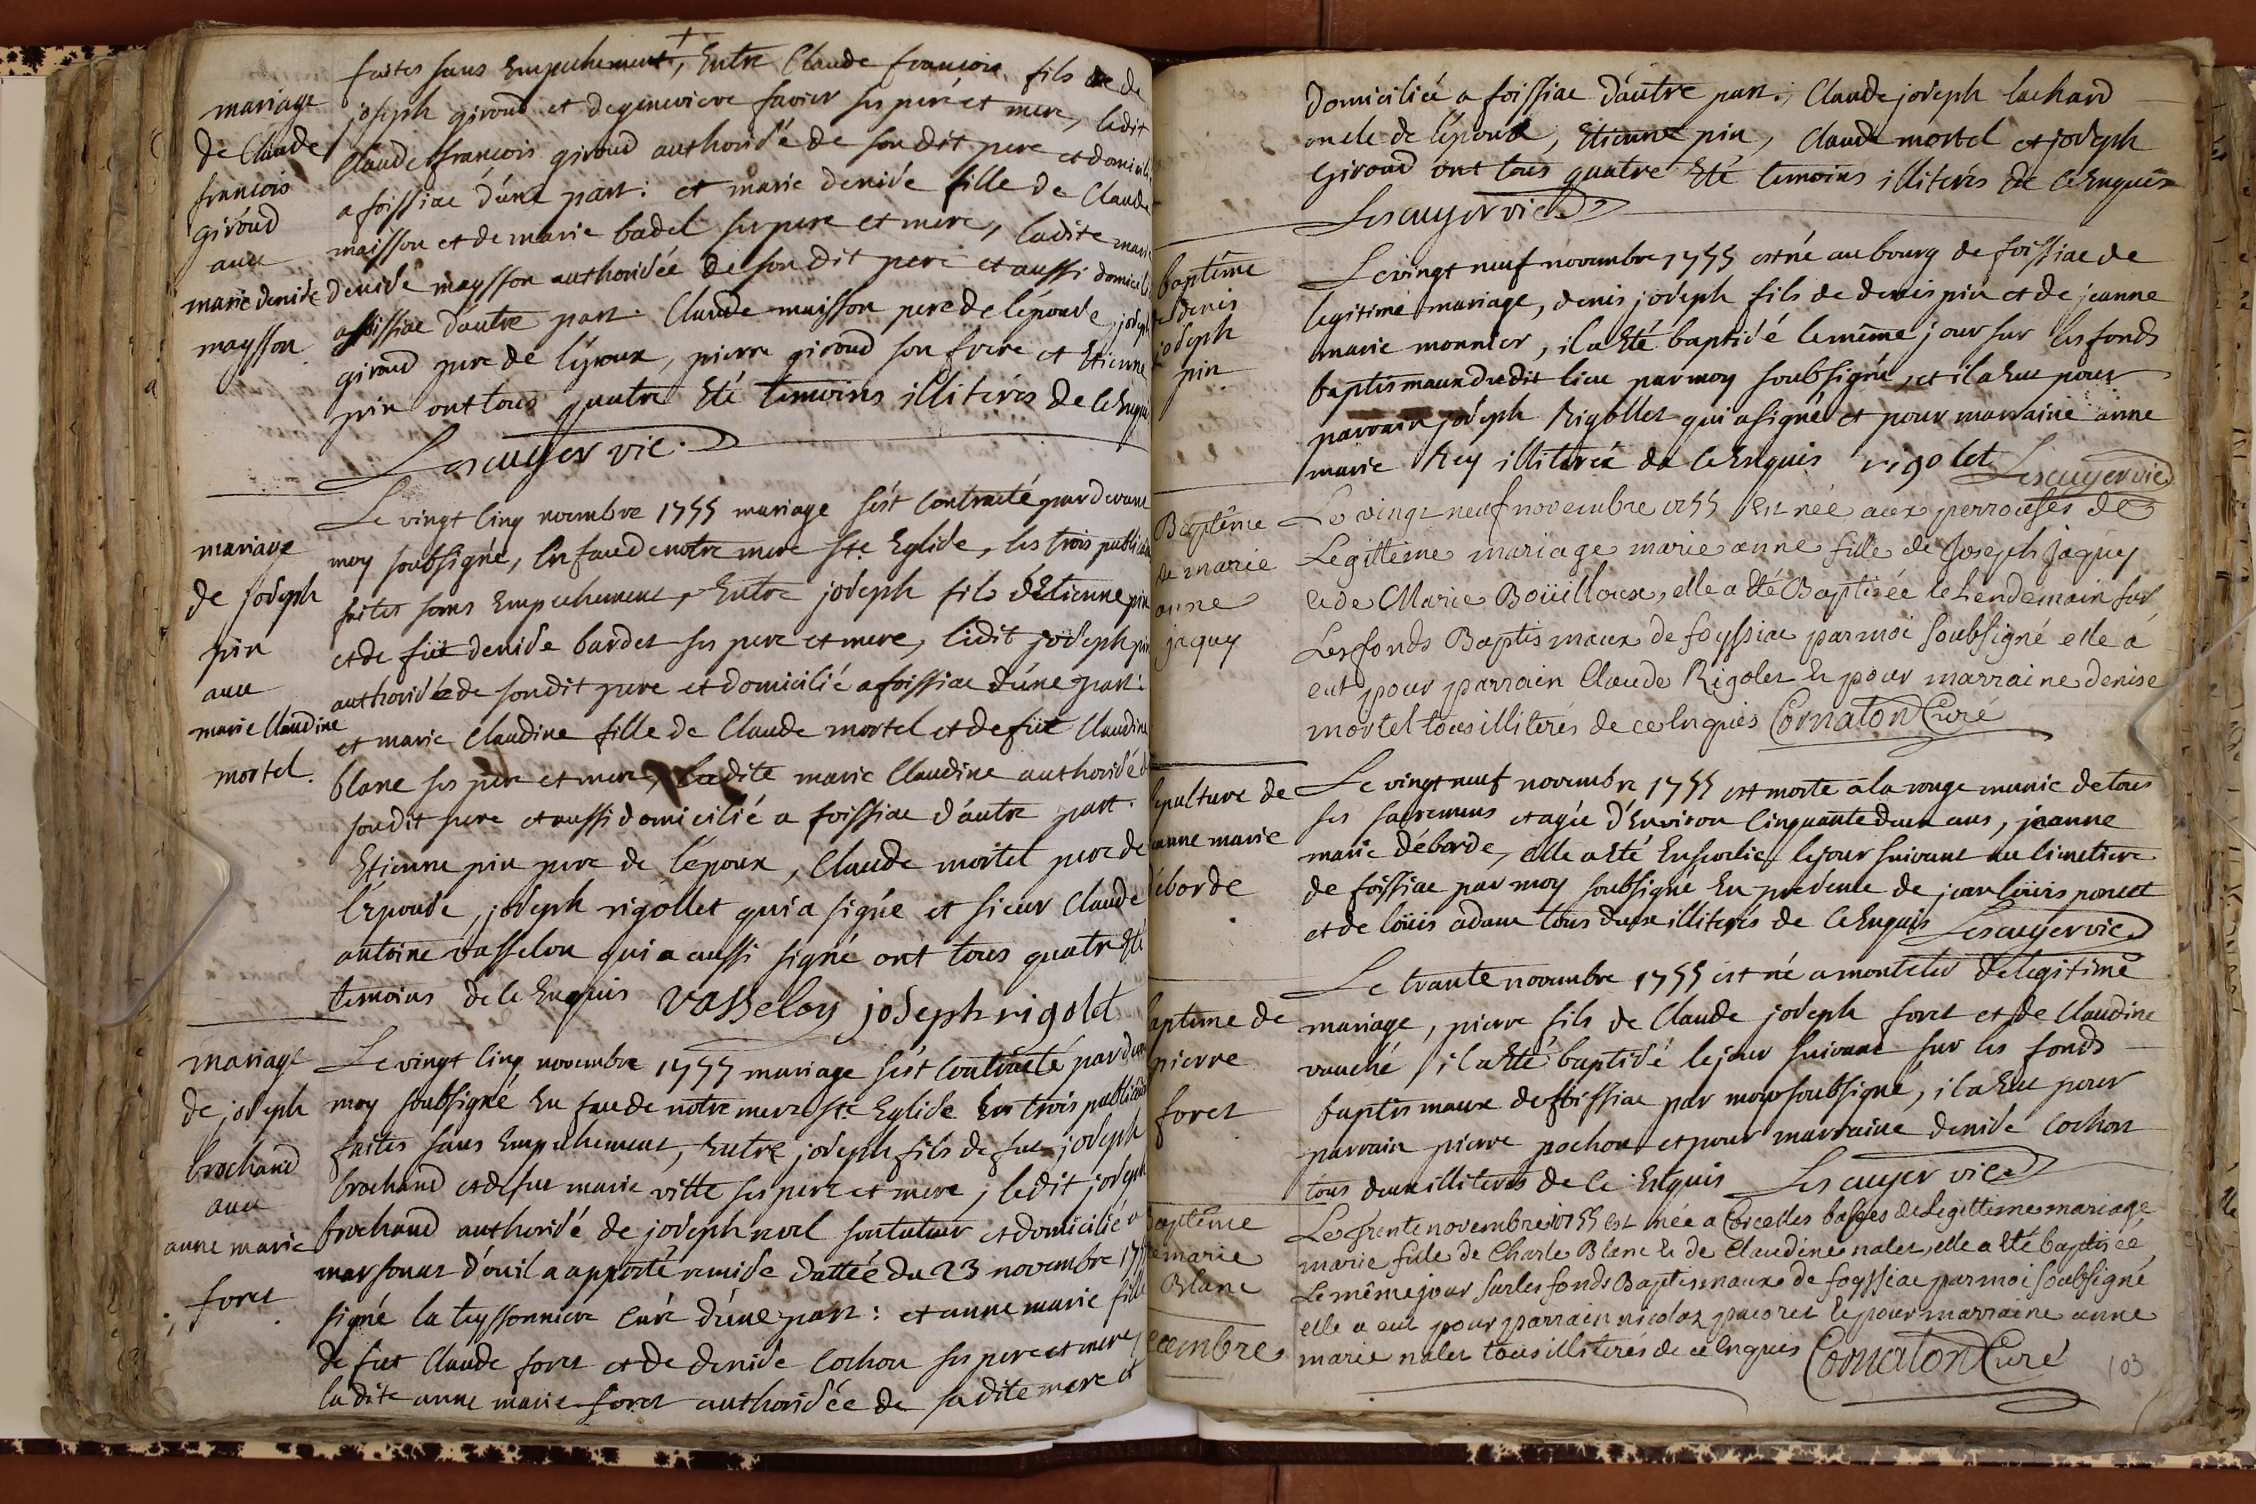 mariage
de Claude
francois
giroud
avec
marie denise
maysson
faites sans Empechement, Entre Claude francois fils de
joseph giroud et de genevieve favier ses pere et mere, ledit
Claude francois giroud authorisé de son dit pere et domicilié
a foissiac d'une part : et marie denise fille de Claude
maisson et de marie badel ses pere et mere, ladite marie
denise maysson authorisée de son dit pere et aussi domicili
a foissiac d'autre part. Claude maisson pere de l'épouse, joseph
giroud pere de l'époux, pierre giroud son frere et Etienne
pin ont tous quatre Eté temoins illiterés de ce Enquis
Lescuyer vic.
mariage
de joseph
pin
avec
marie Claudine
mortel.
Le vingt cinq novembre 1755 mariage s'est contracté pardevant
moy soubsigné, En face de notre mere Ste Eglise, les trois publica
faites sans Empechement, Entre joseph fils d'Etienne pin
et de füe denise bardet ses pere et mere, ledit joseph pin
authorisé de son dit pere et domicilié a foissiac d'une part :
et marie Claudine fille de Claude mortel et de füe Claudine
blanc ses pere et mere, ladite marie Claudine authorisé d
son dit pere et aussi domicilié a foissiac d'autre part.
Etienne pin pere de l'époux, Claude mortel pere de
l'Epouse, joseph rigollet qui a signé et sieur Claude
antoine vasselon qui a aussi signé ont tous quatre Eté
temoins de ce Enquis vasseloy joseph rigolet
mariage
de joseph
brochand
avec
anne marie
foret
Le vingt cinq novembre 1755 mariage s'est Contracté pardev
moy soubsigné En face de notre mere Ste Eglise les trois publica
faites sans Empechement, Entre joseph fils de fue joseph
brochand et de fue marie vitte ses pere et mere ; ledit joseph
brochand authorisé de joseph son tuteur et domicilié a
marsonas d'ouil a apporté remise dattée du 23 novembre 175
signé la teyssonniere Curé d'une part : et anne marie fille
de fut Claude foret et de denise Cochon ses pere et mere,
ladite anne marie foret authorisée de sa dite mere et
domiciliée a foissiac d'autre part., Claude joseph lachard
oncle de l'épouse, Etienne pin, Claude mortel et joseph
Giroud ont tous quatre Eté temoins illiterés de ce Enquis
Lescuyer vic.
baptême
de denis
joseph
pin
Le vingt neuf novembre 1755 est né au bourg de foissiac de
legitime mariage, denis joseph fils de denis pin et de jeanne
marie monnier, il a Eté baptisé le même jour sur les fonds
baptismaux du dit lieu par moy soubsigné, et il a Eut pour
parrain joseph Rigollet qui a signé et pour marraine anne
marie Rey illiterée de ce Enquis rigolet Lescuyer vic.
Baptême
de marie
anne
jaquy
Le vingt neuf novembre 1755 Est née aux perrouses de
Legittime mariage marie anne fille de Joseph Jaquy
et de Marie Boüilloux, elle a été Baptisée le Lendemain sur
Les fonds Baptismaux de foyssiac par moi Soubsigné elle a
eut pour parrain Claude Rigolet et pour marraine denise
mortel tous illiterés de ce Enquis Cornaton Curé
epulture de
anne marie
éborde
Le vingt neuf novembre 1755 est morte a la rouge munie de tous
ses sacremens et agée d'Environ Cinquante deux ans, jeanne
marie déborde, elle a Eté Ensevelie le jour suivant au Cimetiere
de foissiac par moy soubsigné En presence de jean loüis poncet
et de loüis adam tous deux illiterés de ce Enquis Lescuyer vic.
aptême de
pierre
foret
Le trante novembre 1755 est né a montelet de legitime
mariage, pierre fils de Claude joseph foret et de Claudine
vauché il a Eté baptisé le jour suivant sur les fonds
baptismaux de foissiac par moy soubsigné, il a Eut pour
parrain pierre pochon et pour marraine denise Cochon
tous deux illiterés de ce Enquis Lescuyer vic.
aptême
marie
Blanc
Le trente novembre 1755 est née a Corcelles basses de Legittime mariage
marie fille de Charle Blanc et de Claudine nalet, elle a Eté baptisée
Le même jour sur les fonds Baptismaux de foyssiac par moi soubsigné
elle a eut pour parrain nicolas pacoret et pour marraine anne
marie nalet tous illiterés de ce Enquis Cornaton Curé
ecembre
103